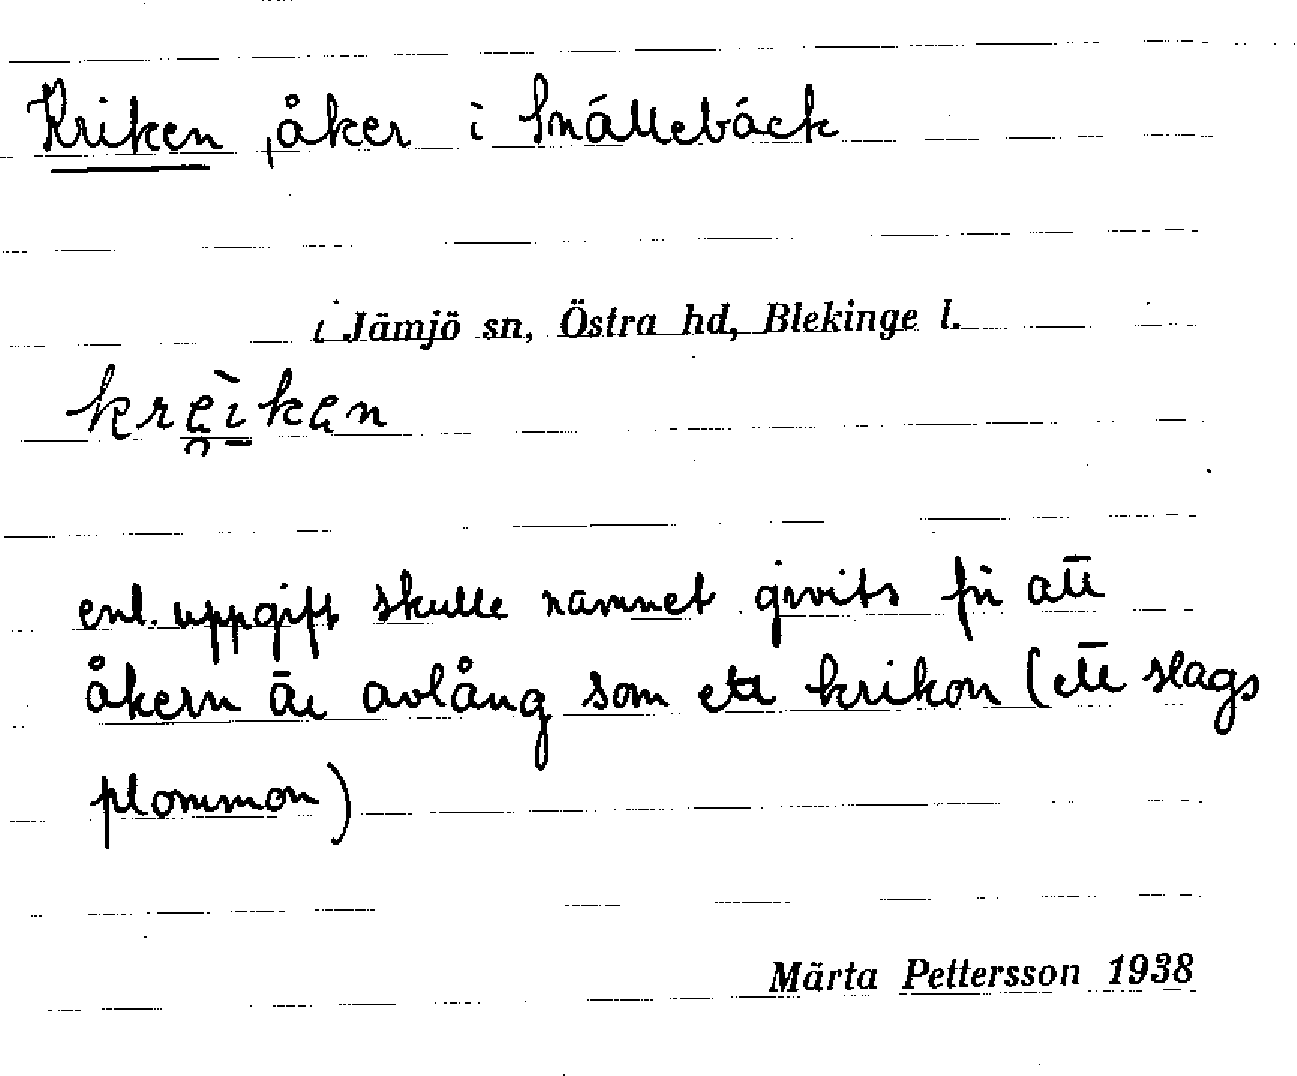 Kriken, åker i Snällebäck
i Jämjö sn, Östra hd, Blekinge l.
kre̯ìken
enl. uppgift skulle namnet givits för att
åkern är avlång som ett krikon (ett slags
plommon)
Märta Pettersson 1938